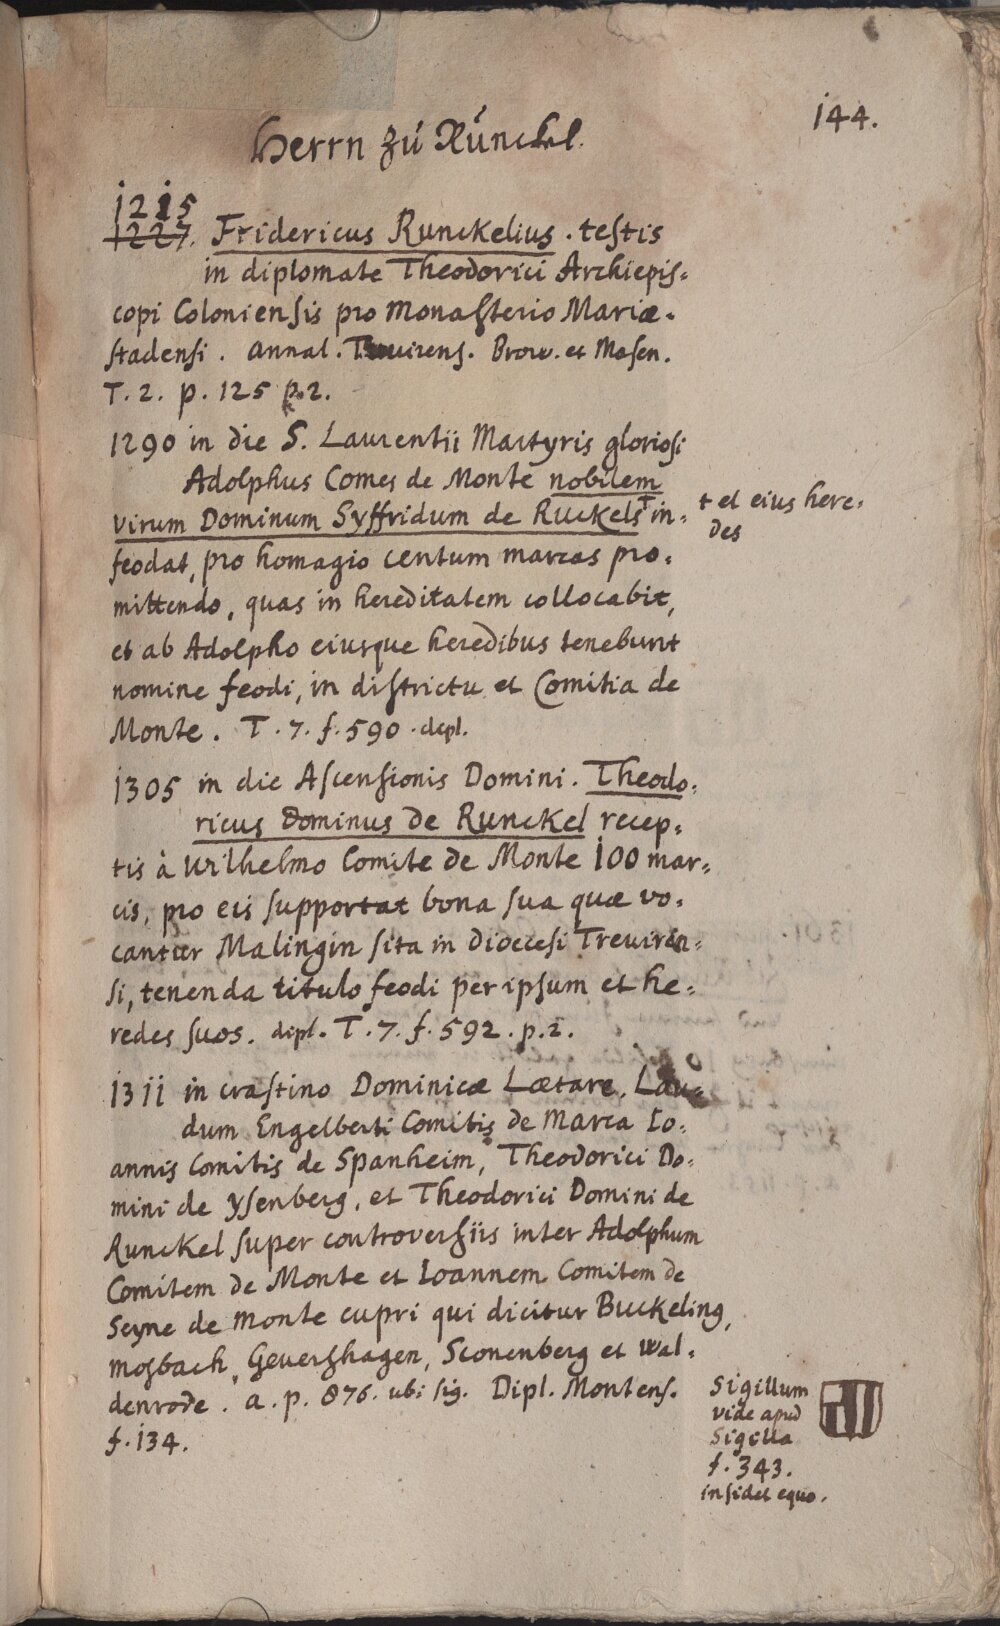 144.
Herrn zu Runckel.
1215
1227. Fridericus Runckelius. testis
in diplomate Theodorici Archiepis=
copi Coloniensis pro Monasterio Mariæ=
stadensi. Annal. Trevirens. Brow. et Masen.
T. 2. p. 125 p. 2.
1290 in die S. Laurentii Martyris gloriosi
Adolphus Comes de Monte nobilem
virum Dominum Syffridum de Ruckels † in=
† et eius here=
des
feodat, pro homagio centum marcas pro=
mittendo, quas in hereditatem collocabit,
et ab Adolpho eiusque heredibus tenebunt
nomine feodi, in districtu et Comitia de
Monte. T. 7. f. 590. dipl.
1305 in die Ascensionis Domini. Theodo=
ricus Dominus de Runckel recep=
tis à Wilhelmo Comite de Monte 100 mar=
cis, pro eis supportat bona sua quæ vo=
cantur Malingin sita in diœcesi Treviren=
si, tenenda titulo feodi per ipsum et he=
redes suos. dipl. T. 7. f. 592. p. 2.
1311 in crastino Dominicæ Lætare. Lau=
dum Engelberti Comitis de Marca Io=
annis Comitis de Spanheim, Theodorici Do=
mini de Ysenberg, et Theodorici Domini de
Runckel super controversiis inter Adolphum
Comitem de Monte et Ioannem Comitem de
Seyne de Monte cupri qui dicitur Buckeling,
Mosbach, Gevershagen, Sconenberg et Wal=
denrode. a. p. 876. ubi sig. Dipl. Montens.
f. 134.
Sigillum
vide apud
Sigilla
f. 343.
insidet equo.